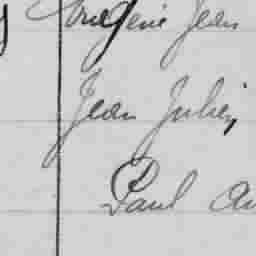 Eugénie Jean
Jean Julien
Paul Au